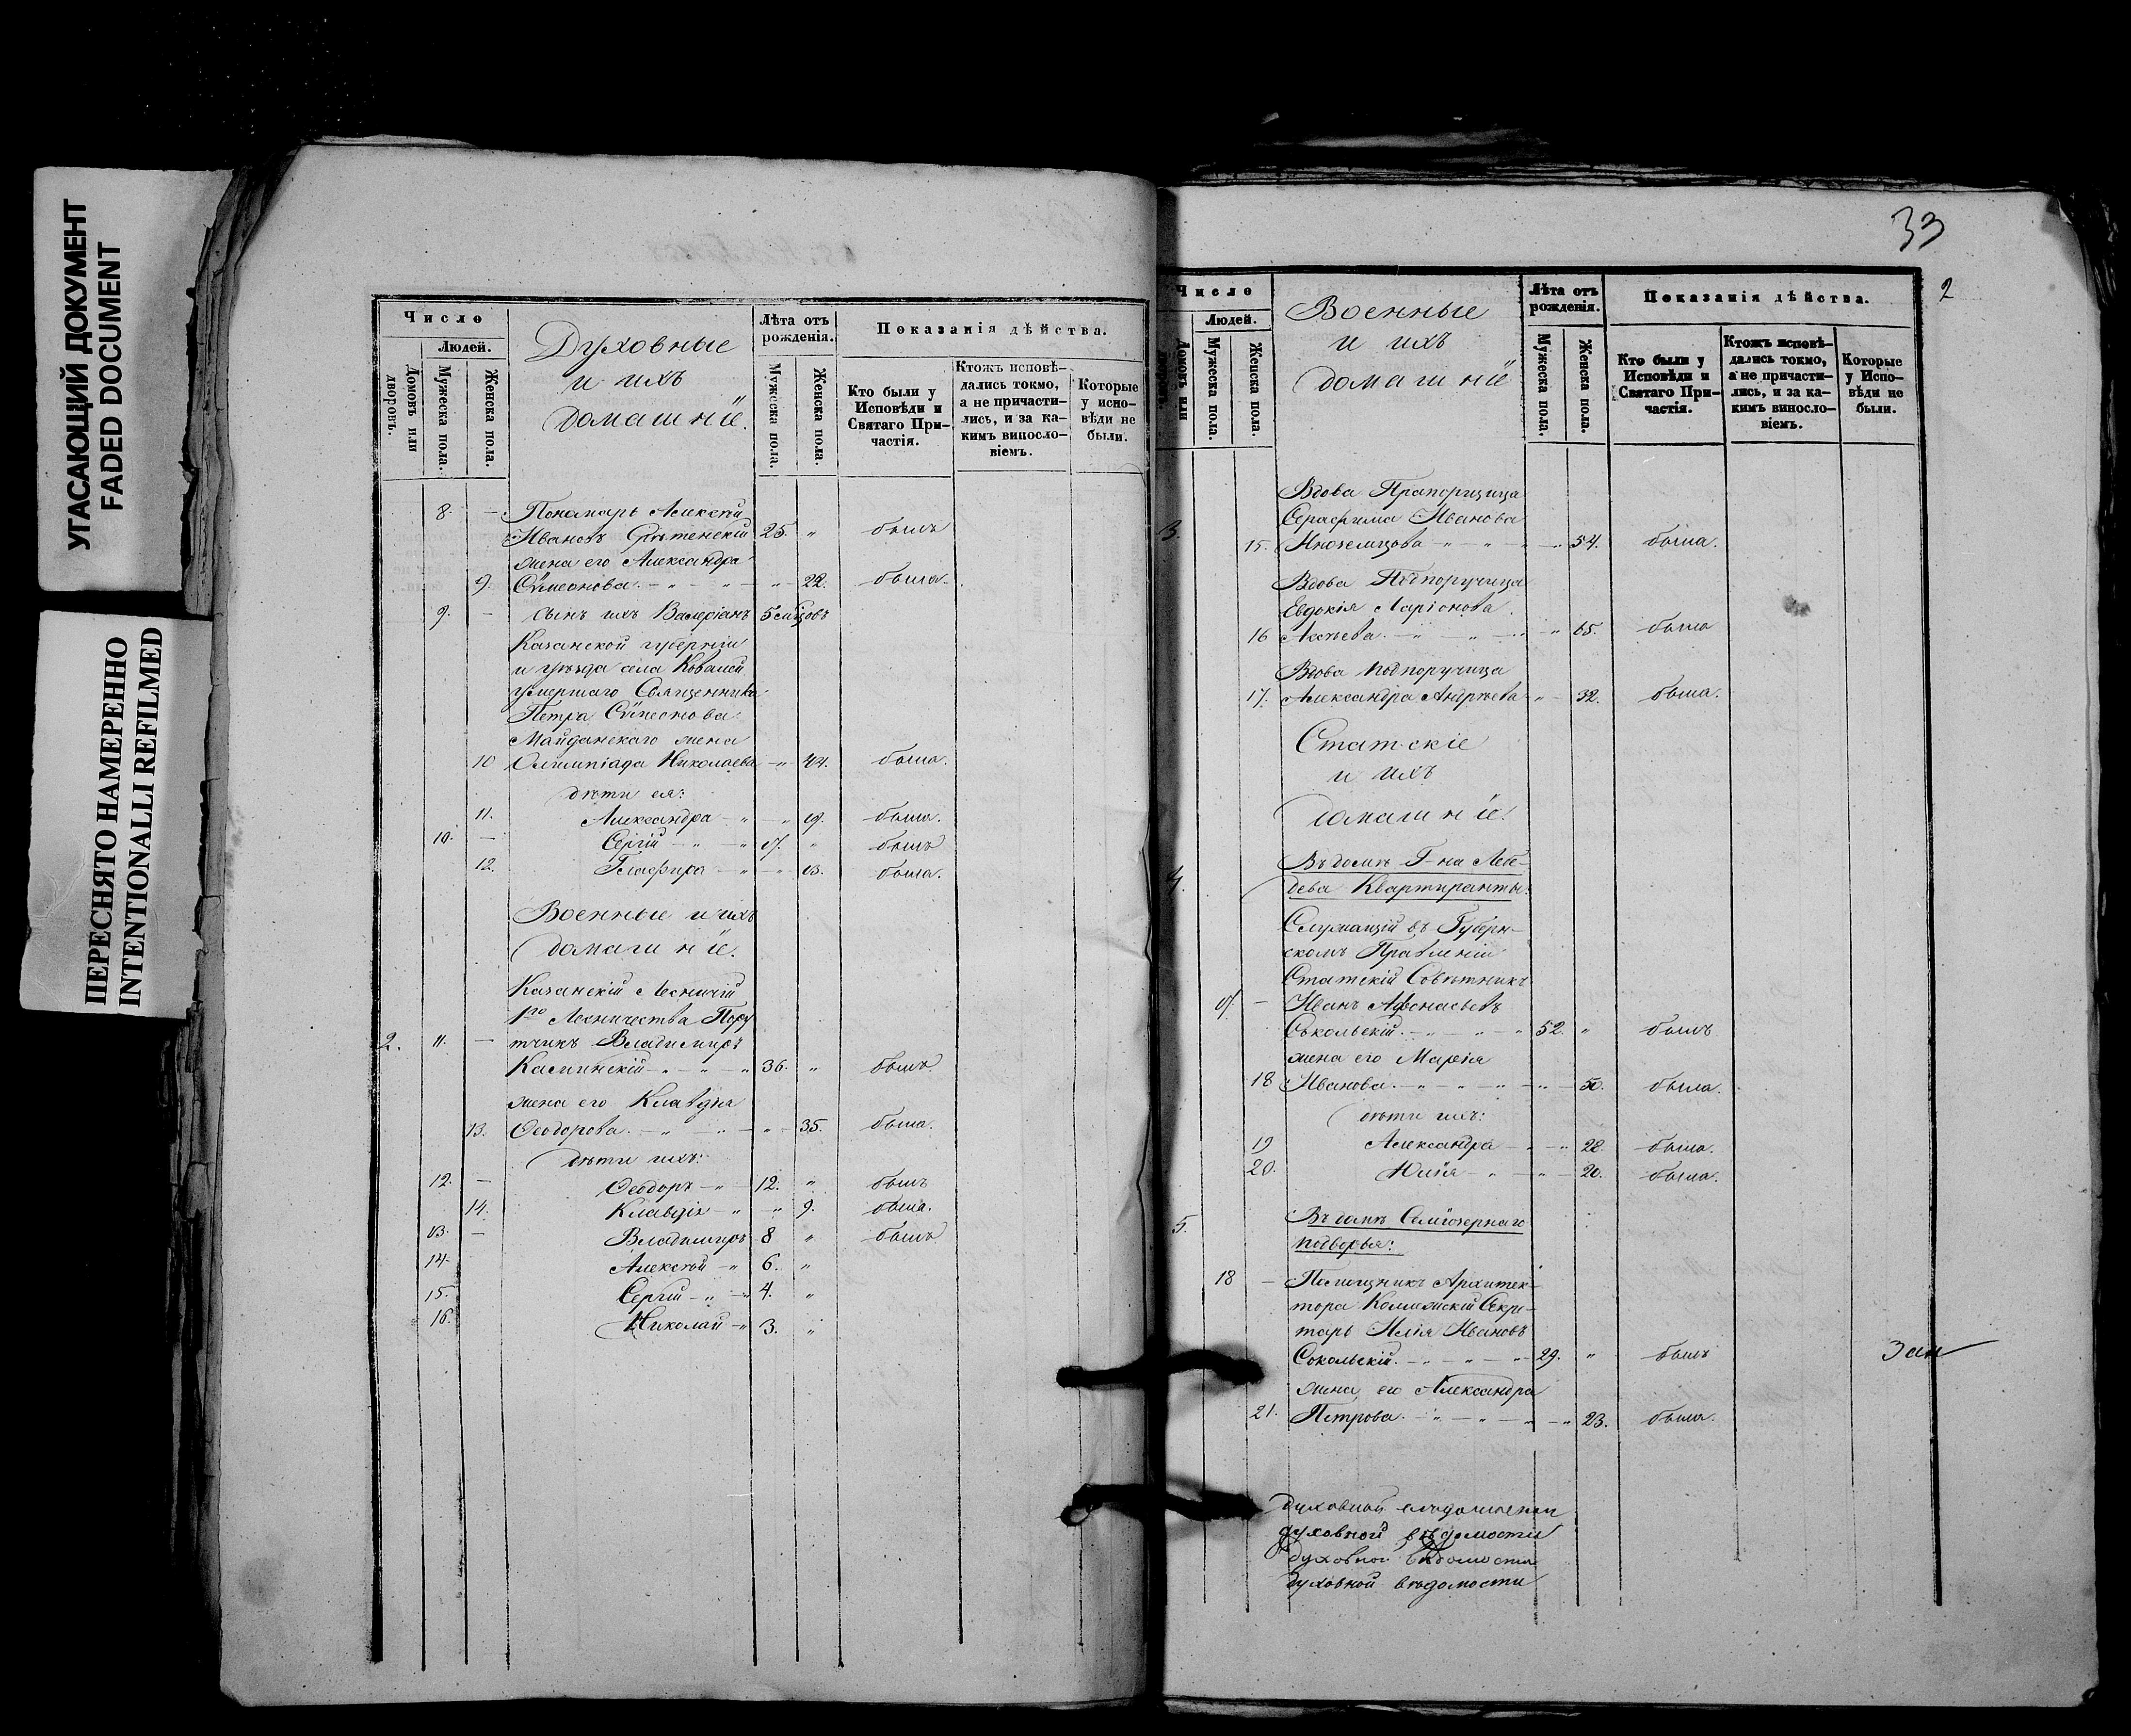 УГАСАЮЩИЙ ДОКУМЕНТ
FADED DOCUMENT
ПЕРЕСНЯТО НАМЕРЕННО
INTENTIONALLI REFILMED
Число
Людей.
Домовъ или дворовъ.
Мужеска пола.
Женска пола.
Духовные
и ихъ
домашніе.
Лѣта отъ рожденія.
Мужеска пола.
Женска пола.
Показанія дѣйства.
Кто были у Исповѣди и Святаго Причастія.
Ктожъ исповѣдались токмо, а не причастились, и за какимъ винословіемъ.
Которые у исповѣди не были.
8. — Пономарь Алексѣй
Ивановъ Срѣтенскій 25. " былъ
жена его Александра
9. Сѵмеонова — " — " — " 22. была
9. — сынъ ихъ Валеріанъ 5 мѣсцовъ
Казанской губерніи
и уѣзда села Ковалей
умершаго Священника
Петра Сѵмеонова
Майданскаго жена
10 Олимпіада Николаева — " 44. была.
дѣти ея:
11. Александра — " — " 19. была.
10. — Сергій — " — " 17. " былъ
12. Глафира — " — " 13. была.
Военные и ихъ
домашніе.
Казанскій Лесничій
1го Лесничества Пору
2. 11. — тчикъ Владимиръ
Калинскій — " — " — " 36. " былъ
жена его Клавдія
13. Ѳеодорова. — " — " — " 35. была.
дѣти ихъ:
12. — Ѳеодоръ — " — 12. " былъ
14. Клавдія — " — " 9. была.
13. — Владимиръ 8 " былъ
14. Алексѣй — " 6. "
15. Сергій — " — " 4. "
16. Николай — " 3. "
33
2
Число
Людей.
Домовъ или
Мужеска пола.
Женска пола.
Военные
и ихъ
домашніе
Лѣта отъ рожденія.
Мужеска пола.
Женска пола.
Показанія дѣйства.
Кто были у Исповѣди и Святаго Причастія.
Ктожъ исповѣдались токмо, а не причастились, и за какимъ винословіемъ.
Которые у Исповѣди не были.
Вдова Прапорщица
Серафима Иванова
3. 15. Иноземцова — " — " — " 54. была.
Вдова Подпоручица
Евдокія Ларіонова
16 — " — " — " 65. была
Вдова подпоручица
17. Александра Андрѣева — " — 32. была.
Статскіе
и ихъ
домашніе.
4. Въ домѣ Г-на Лебе-
дева Квартиранты:
Служащій въ Губерн-
скомъ Правленіи
Статскій Совѣтникъ
17. — Иванъ Афонасьевъ
Сокольскій. — " — " — " 52. " былъ
жена его Марія
18 Иванова. — " — " — " — " 50. была.
дѣти ихъ:
19 Александра — " — " 22. была.
20. Юлія — " — " — 20. была.
5. Въ домѣ Семіозернаго
подворья:
18 — Помощникъ Архитек-
тора Коллежскій Секре-
тарь Илія Ивановъ
Сокольскій. — " — " — " 29. " былъ
жена его Александра
21. Петрова. — " — " — " — " 23. была.
духовной
духовной вѣдомости
духовной вѣдомости
духовной вѣдомости